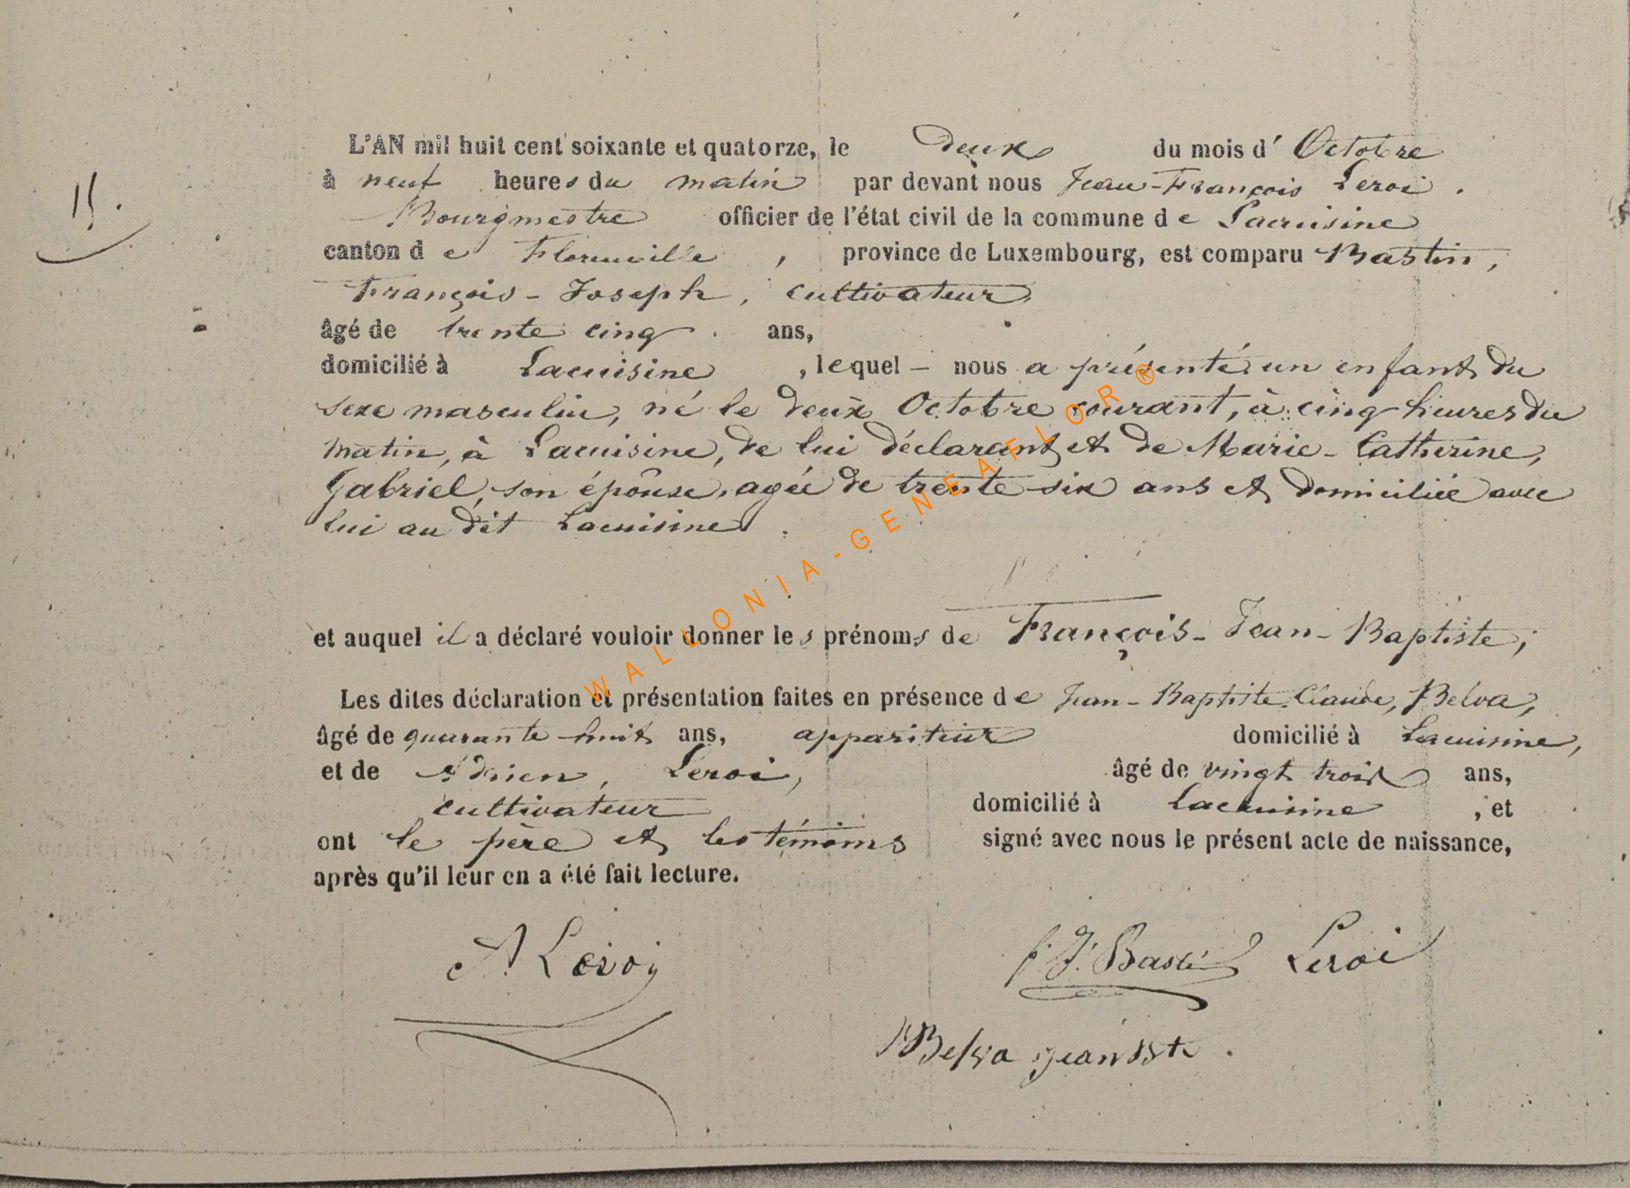 L'AN mil huit cent soixante et quatorze, le deux du mois d'Octobre
15.
à neuf heures du matin par devant nous Jean-François Leroi.
Bourgmestre officier de l'état civil de la commune de Lacuisine
canton de Florenville, province de Luxembourg, est comparu Bastin,
François-Joseph, cultivateur,
âgé de trente cinq ans,
domicilié à Lacuisine, lequel – nous a présenté un enfant du
sexe masculin, né le deux Octobre courant, à cinq heures du
matin, à Lacuisine, de lui déclarant et de Marie-Catherine,
Gabriel, son épouse, agée de trente-six ans et domiciliée avec
lui au dit Lacuisine.
et auquel il a déclaré vouloir donner les prénoms de François-Jean-Baptiste;
Les dites déclaration et présentation faites en présence de Jean-Baptiste Claude, Belva,
âgé de quarante-huit ans, appariteur domicilié à Lacuisine,
et de Adrien, Leroi, âgé de vingt trois ans,
cultivateur domicilié à Lacuisine, et
ont le père et les témoins signé avec nous le présent acte de naissance,
après qu'il leur en a été fait lecture.
A. Leroy F. J. Bastin Leroi
Belva jean Bte.
WALLONIA-GENEAFLOR®